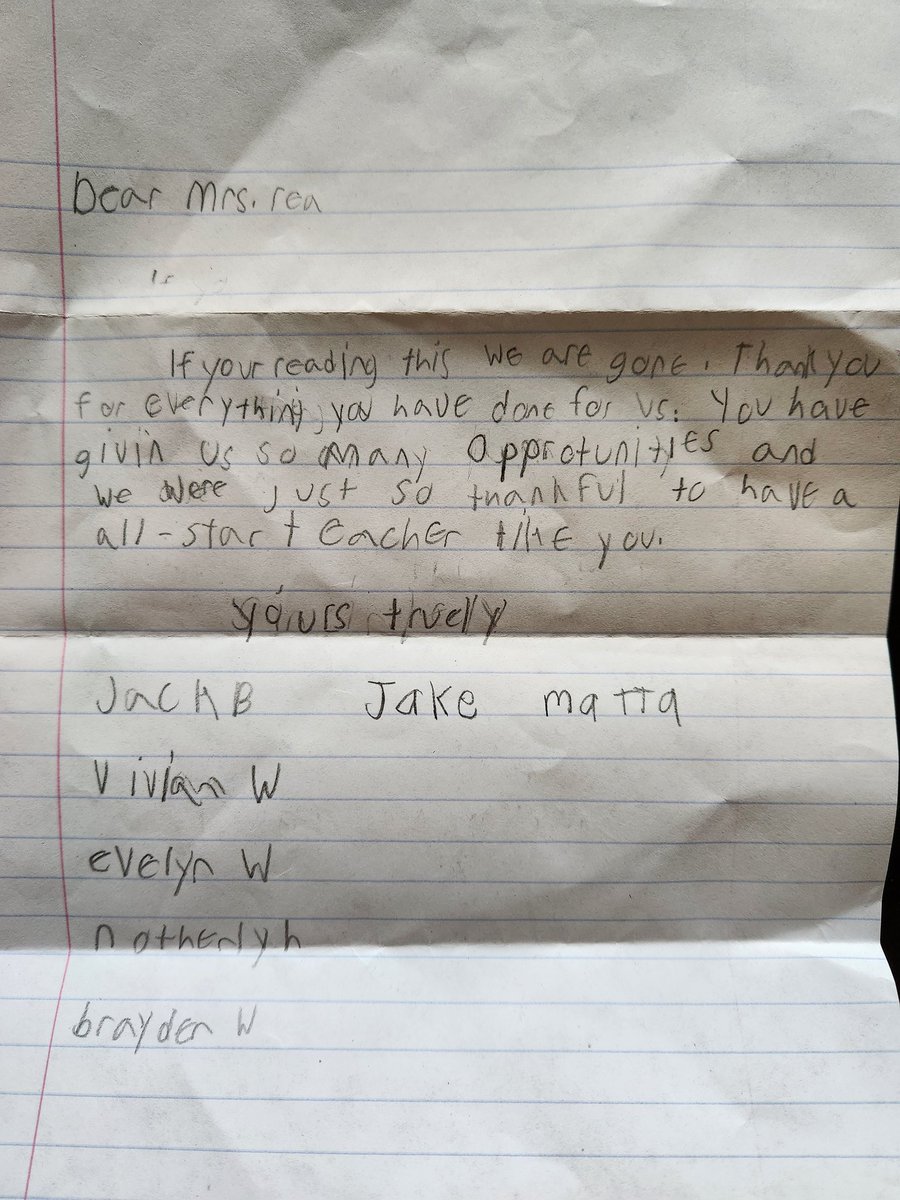 Dear Mrs. rea
If
If your reading this we are gone. Thank you
for everything you have done for us. You have
givin us so many opprotunities and
we were just so thankful to have a
all-star teacher like you.
yours truely
Jack B Jake matta
Vivian W
evelyn W
brayden W